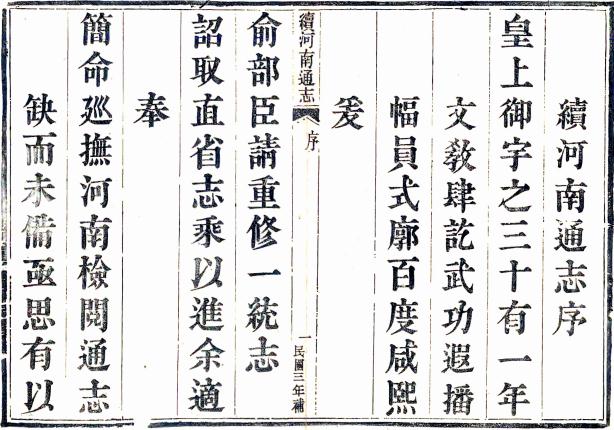 續河南通志序
皇上御宇之三十有一年
文教肆訖武功遐播
幅員式廓百度咸熙
爰
續河南通志
序
一
民國三年補
俞部臣請重修一統志
詔取直省志乘以進余適
奉
簡命廵撫河南檢閱通志
缺而未備亟思有以